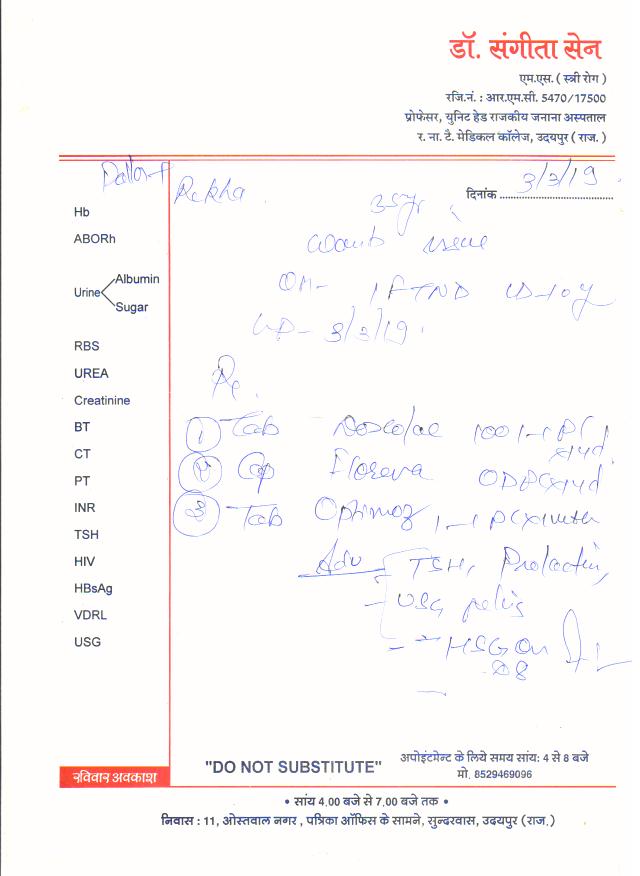 डॉ. संगीता सेन
एम.एस. ( स्त्री रोग )
रजि.नं. : आर.एम.सी. 5470/17500
प्रोफेसर, युनिट हेड राजकीय जनाना अस्पताल
र. ना. टै. मेडिकल कॉलेज, उदयपुर ( राज. )
Pallor+
Rekha 35yr
दिनांक 3/3/19
Hb
ABORh
Wants issue
Urine Albumin
Sugar
OH- 1 FTND
LMP- 3/3/19
RBS
UREA
Creatinine
Rx
BT
1 Tab 100 1-1 PC
CT
2 Cap OD PC
PT
INR
3 Tab 1-1 PC
TSH
HIV
Adv TSH, Prolactin,
HBsAg
USG pelvis
VDRL
USG
HSG on
D8
रविवार अवकाश
"DO NOT SUBSTITUTE"
अपोइंटमेन्ट के लिये समय सांय: 4 से 8 बजे
मो. 8529469096
• सांय 4.00 बजे से 7.00 बजे तक •
निवास : 11, ओस्तवाल नगर , पत्रिका ऑफिस के सामने, सुन्दरवास, उदयपुर (राज.)